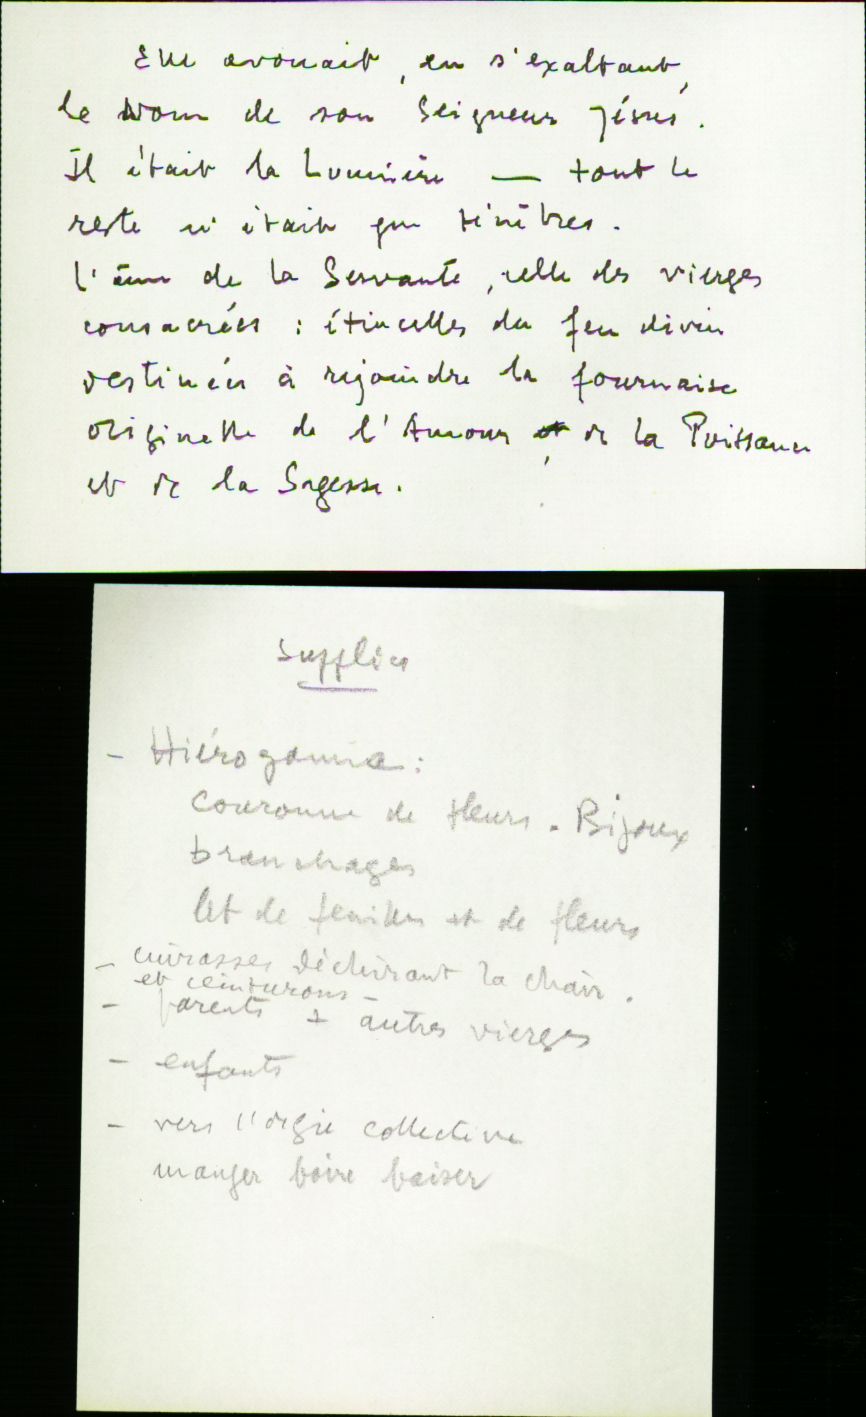 Elle avouait, en s'exaltant,
le Nom de son Seigneur Jésus.
Il était la Lumière — tout le
reste n'était que ténèbres.
L'âme de la Servante, celle des vierges
consacrées : étincelles du feu divin
destinées à rejoindre la fournaise
originelle de l'Amour, de la Puissance
et de la Sagesse.
Supplices
- Hiérogamie :
Couronne de fleurs. Bijoux
branchages
lit de feuilles et de fleurs
- cuirasses déchirant la chair.
et ceinturons -
- parents + autres vierges
- enfants
- vers l'orgie collective
manger boire baiser